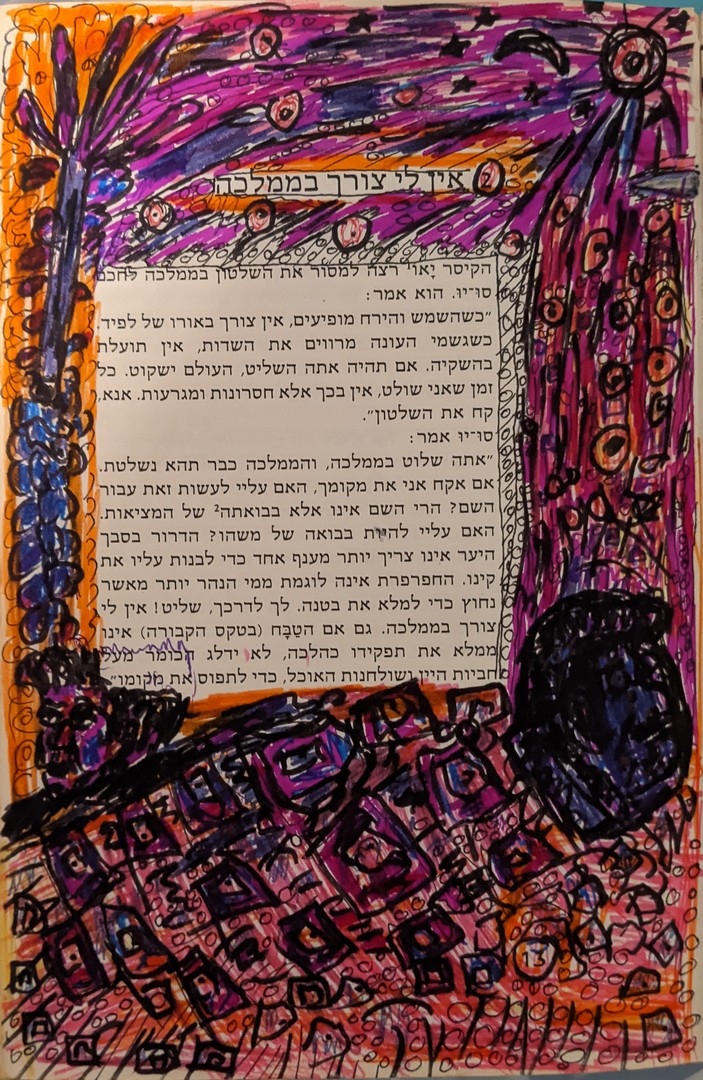 2 אין לי צורך בממלכה
הקיסר יָאוֹ רצה למסור את השלטון בממלכה לחכם
סוּ־יוּ. הוא אמר:
״כשהשמש והירח מופיעים, אין צורך באורו של לפיד.
כשגשמי העונה מרווים את השדות, אין תועלת
בהשקיה. אם תהיה אתה השליט, העולם ישקוט. כל
זמן שאני שולט, אין בכך אלא חסרונות ומגרעות. אנא,
קח את השלטון״.
סוּ־יוּ אמר:
״אתה שלוט בממלכה, והממלכה כבר תהא נשלטת.
אם אקח אני את מקומך, האם עליי לעשות זאת עבור
השם? הרי השם אינו אלא בבואתה² של המציאות.
האם עליי להיות בבואה של משהו? הדרור בסבך
היער אינו צריך יותר מענף אחד כדי לבנות עליו את
קינו. החפרפרת אינה לוגמת ממי הנהר יותר מאשר
נחוץ כדי למלא את בטנה. לך לדרכך, שליט! אין לי
צורך בממלכה. גם אם הטַבָּח (בטקס הקבורה) אינו
ממלא את תפקידו כהלכה, לא ידלג הכומר מעל
חביות היין ושולחנות האוכל, כדי לתפוס את מקומו״.
13